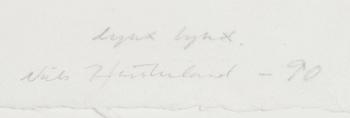 lynx lynx.
Nils Hinterland - 90